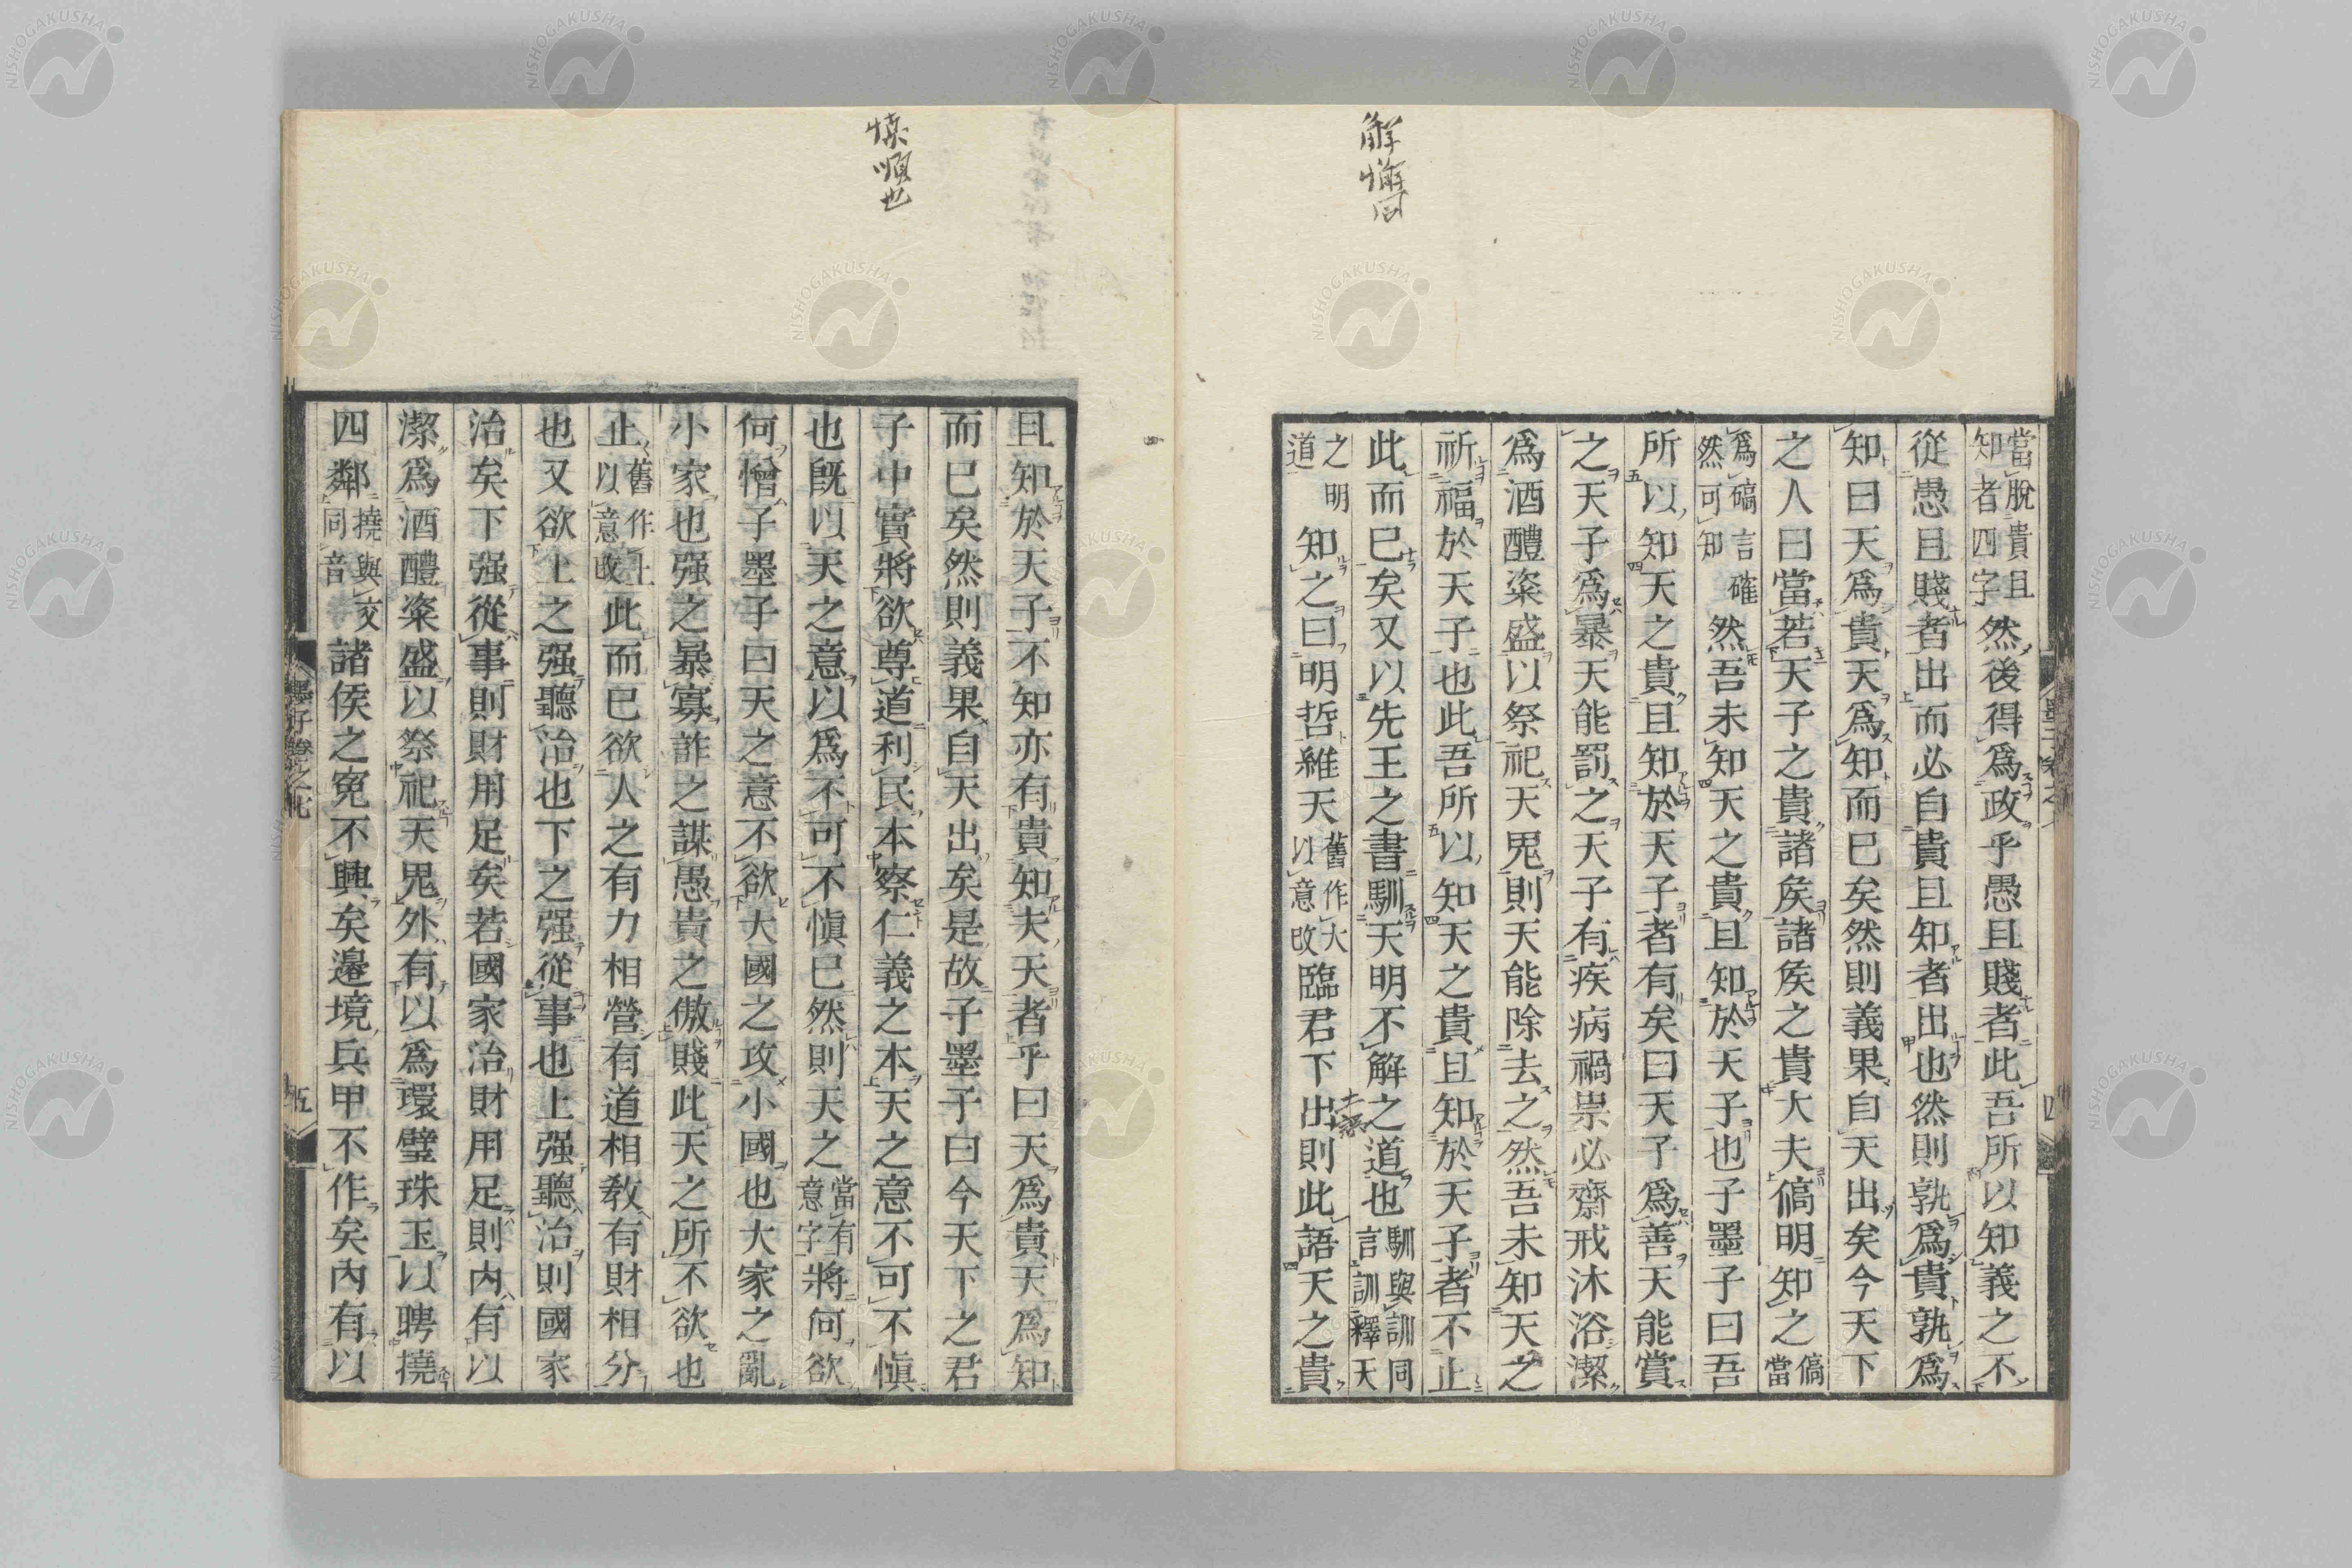 解懈同
當脫貴且知者四字然後得爲政乎愚且賤者此吾所以知義之不
從愚且賤者出而必自貴且知者出也然則孰爲貴孰爲
知曰天爲貴天爲知而已矣然則義果自天出矣今天下
之人曰當若天子之貴諸矦諸矦之貴大夫傐明知之傐當
爲碻言確然可知然吾未知天之貴且知於天子也子墨子曰吾
所以知天之貴且知於天子者有矣曰天子爲善天能賞
之天子爲暴天能罰之天子有疾病禍祟必齋戒沐浴潔
爲酒醴粢盛以祭祀天鬼則天能除去之然吾未知天之
祈福於天子也此吾所以知天之貴且知於天子者不止
此而已矣又以先王之書馴天明不解之道也馴與訓同言訓釋天
之明道知之曰明哲維天舊作大以意改臨君下出則此語天之貴
土誤
墨子卷之七
四
慎順也
且知於天子不知亦有貴知夫天者乎曰天爲貴天爲知
而已矣然則義果自天出矣是故子墨子曰今天下之君
子中實將欲尊道利民本察仁義之本天之意不可不慎
也既以天之意以爲不可不慎已然則天之當有意字將何欲
何憎子墨子曰天之意不欲大國之攻小國也大家之亂
小家也强之暴寡詐之謀愚貴之傲賤此天之所不欲也
止舊作上以意改此而已欲人之有力相營有道相教有財相分
也又欲上之强聽治也下之强從事也上强聽治則國家
治矣下强從事則財用足矣若國家治財用足則内有以
潔爲酒醴粢盛以祭祀天鬼外有以爲環璧珠玉以聘撓
四鄰撓與交同音諸侯之寃不興矣邊境兵甲不作矣内有以
墨子卷之七
五
NISHOGAKUSHA